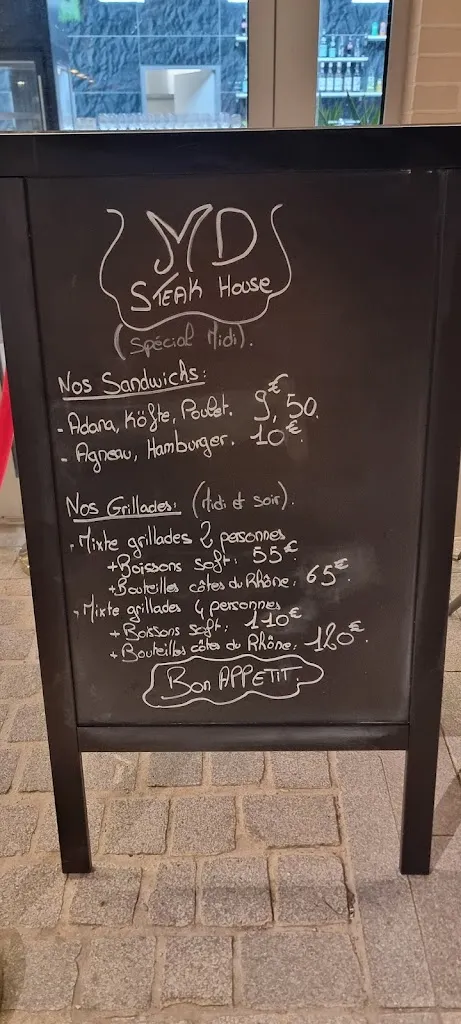 MD
STEAK HOUSE
(Spécial Midi).
Nos SANDWICHS:
- Adana, Köfte, Poulet. 9€,50.
- Agneau, Hamburger. 10€.
Nos GRILLADES: (Midi et soir).
- Mixte grillades 2 personnes
+ Boissons soft: 55€
+ Bouteilles côtes du Rhône: 65€.
- Mixte grillades 4 personnes
+ Boissons soft: 110€
+ Bouteilles côtes du Rhône: 120€.
Bon APPETIT.